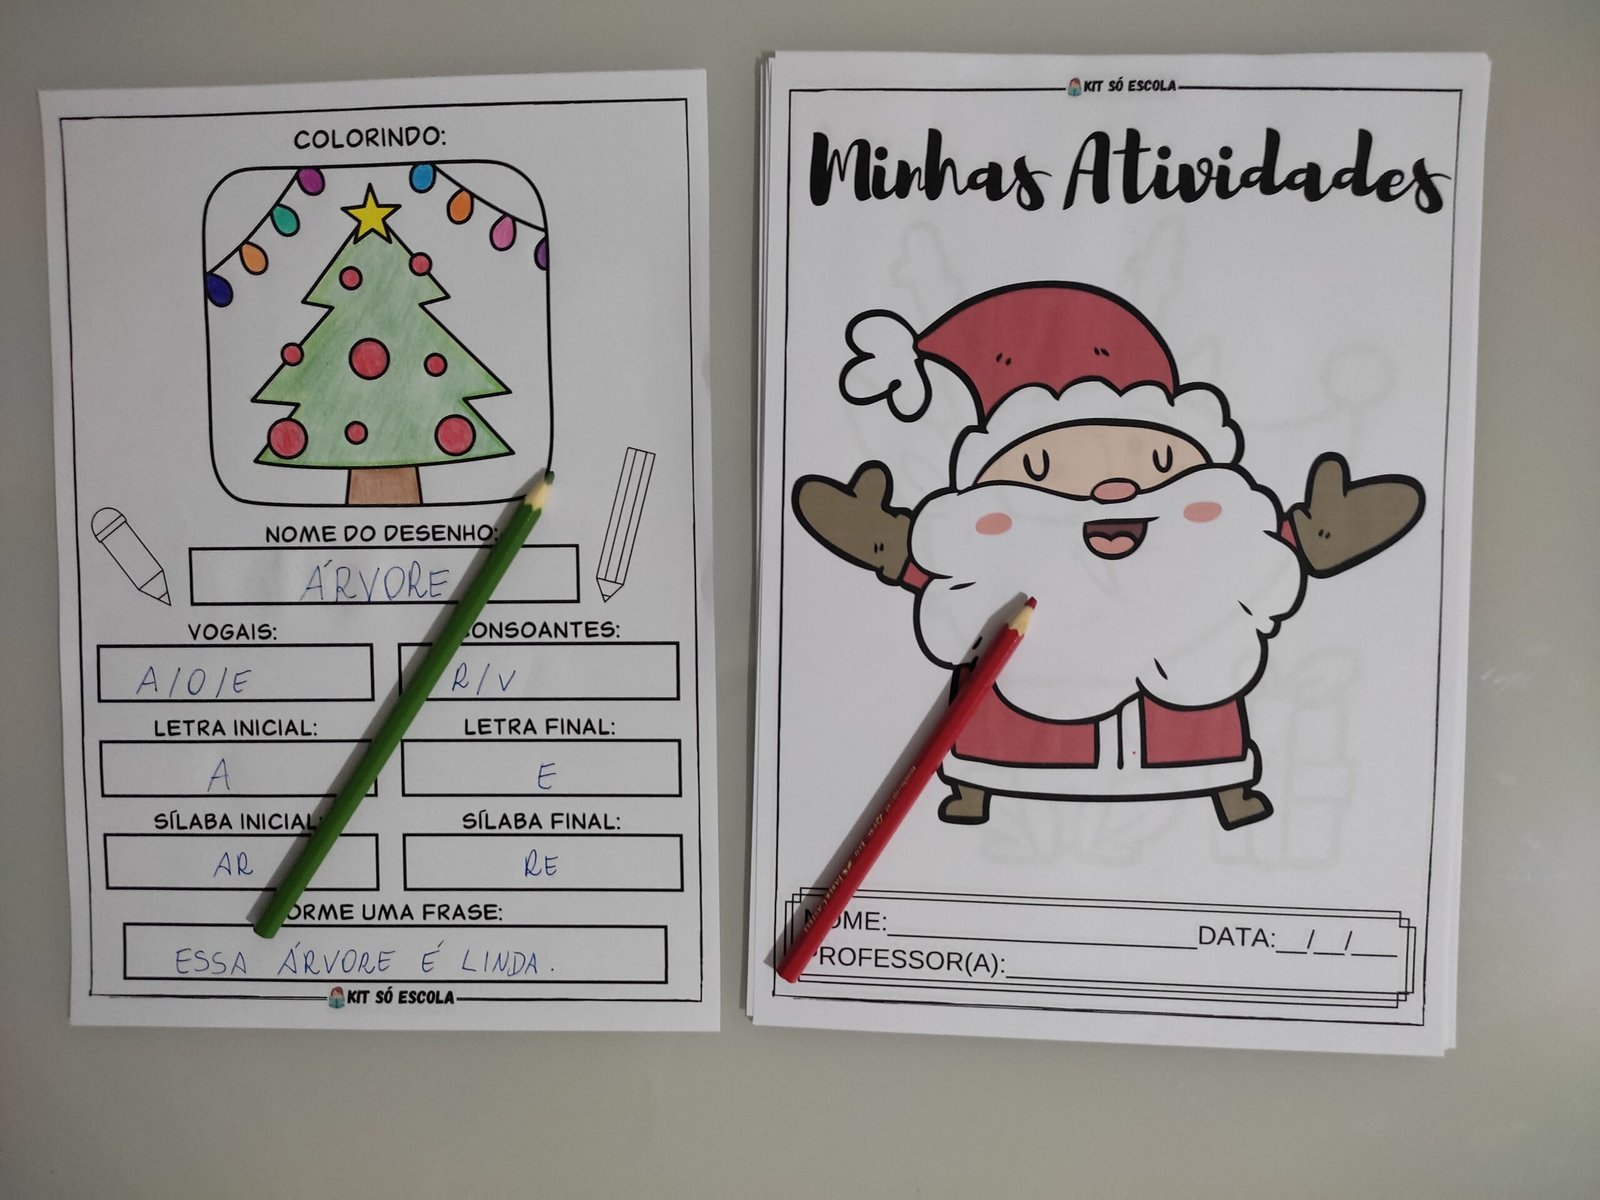 COLORINDO:
NOME DO DESENHO:
ÁRVORE
VOGAIS:
CONSOANTES:
A/O/E
R/V
LETRA INICIAL:
LETRA FINAL:
A
E
SÍLABA INICIAL:
SÍLABA FINAL:
AR
RE
FORME UMA FRASE:
ESSA ÁRVORE É LINDA.
KIT SÓ ESCOLA
KIT SÓ ESCOLA
Minhas Atividades
NOME:
DATA:__/__/__
PROFESSOR(A):